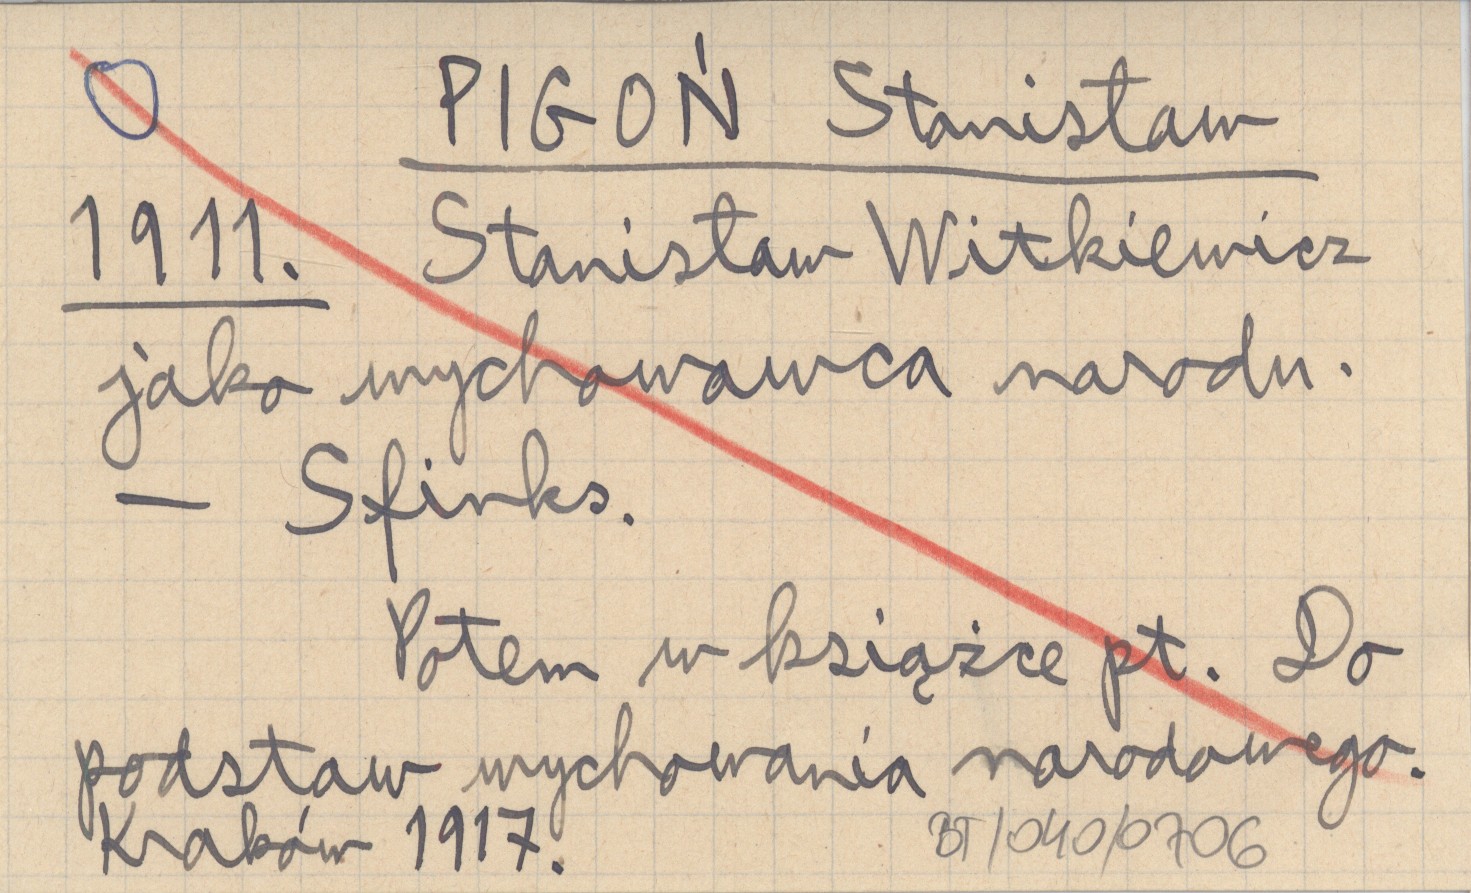 PIGOŃ Stanisław
1911. Stanisław Witkiewicz
jako wychowawca narodu.
— Sfinks.
Potem w książce pt. Do
podstaw wychowania narodowego.
Kraków 1917.
BT/040/0706